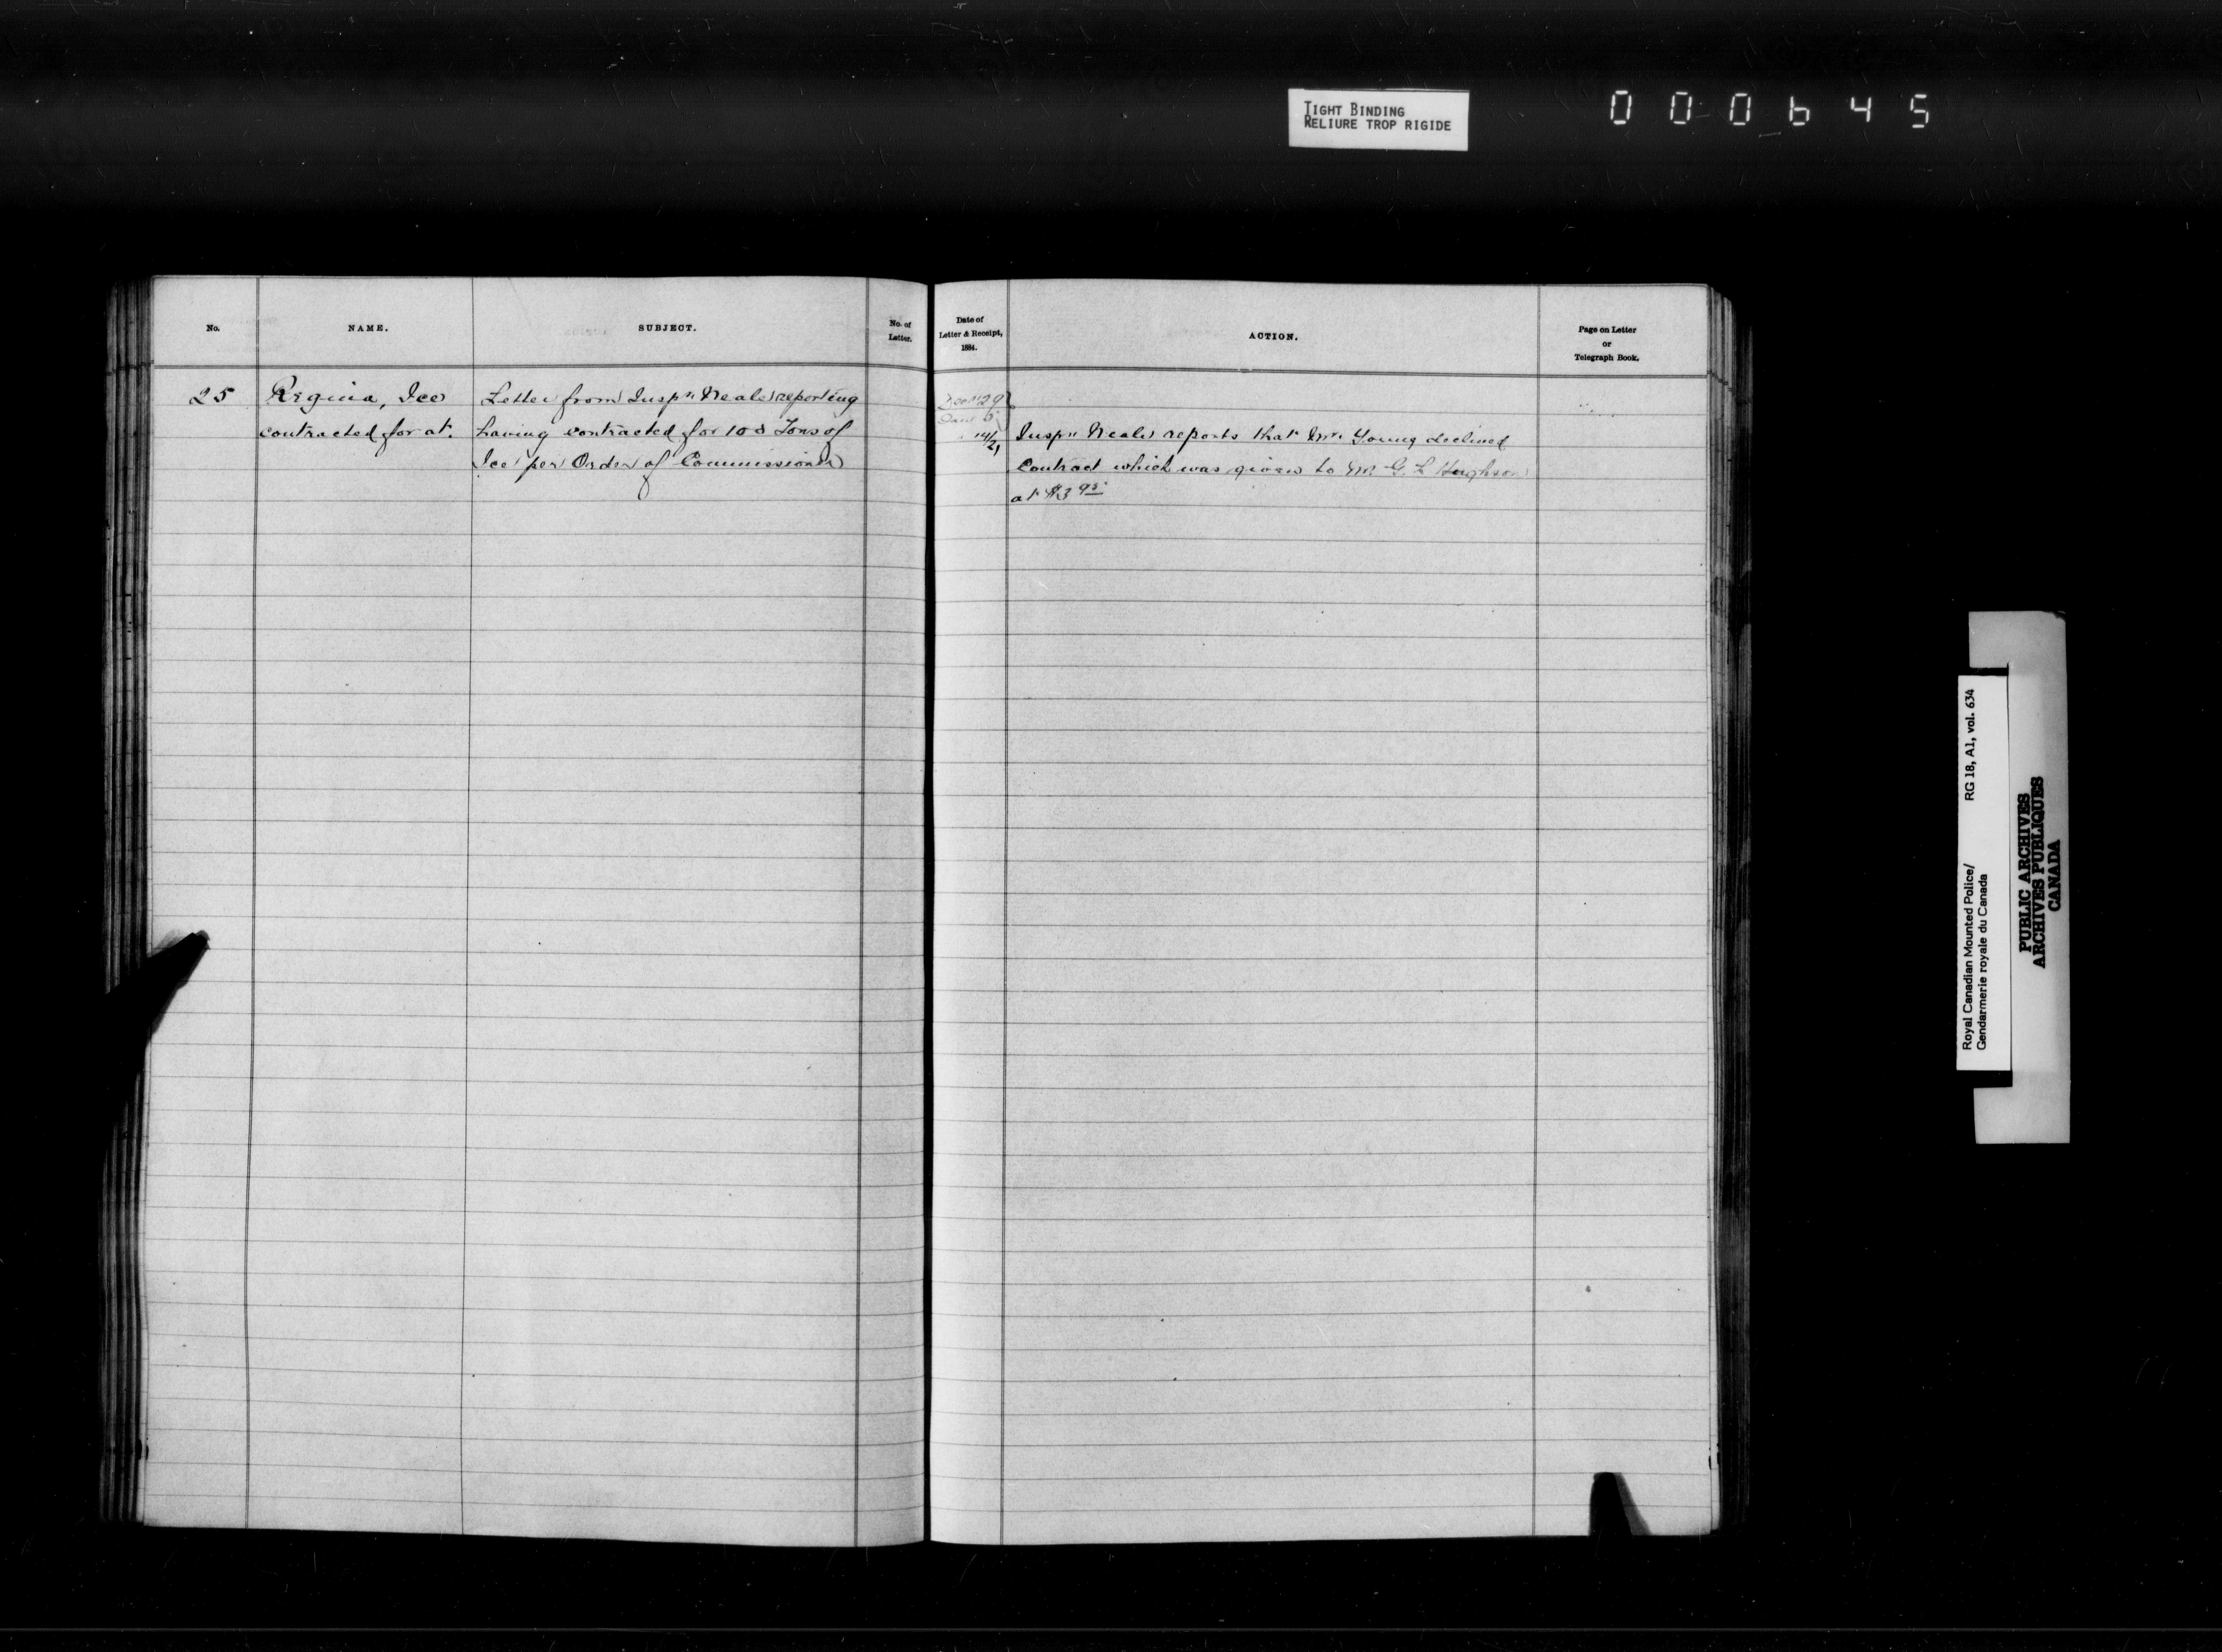 TIGHT BINDING
RELIURE TROP RIGIDE
000645
No.
NAME.
SUBJECT.
No. of
Letter.
Date of
Letter & Receipt,
1884.
ACTION.
Page on Letter
or
Telegraph Book.
25
Regina, Ice
contracted for at.
Letter from Inspr Neale reporting
having contracted for 100 Tons of
Ice per Order of Commissioner
Decr 29
Jany 5
14/21
Inspr Neale reports that Mr. Young declined
Contract which was given to Mr. G. L Hughson
at $3 95
Royal Canadian Mounted Police/
Gendarmerie royale du Canada
RG 18, A1, vol. 634
PUBLIC ARCHIVES
ARCHIVES PUBLIQUES
CANADA